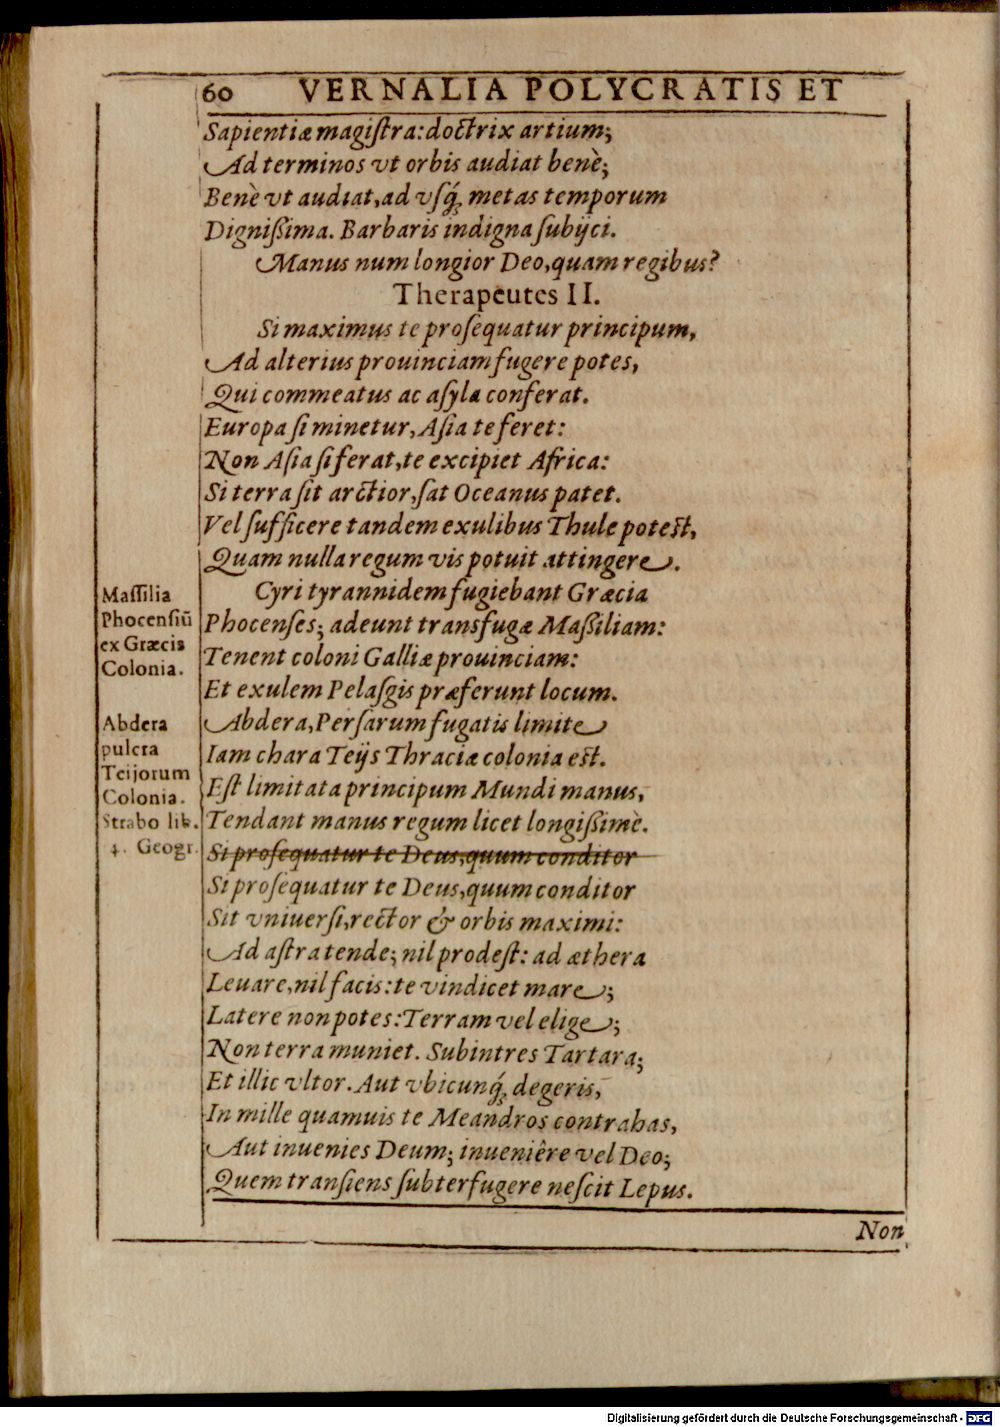 60 VERNALIA POLYCRATIS ET
Sapientiæ magiſtra: doctrix artium;
Ad terminos vt orbis audiat benè;
Benè vt audiat, ad vſq́ꝫ metas temporum
Digniſſima. Barbaris indigna ſubijci.
Manus num longior Deo, quam regibus?
Therapeutes II.
Si maximus te proſequatur principum,
Ad alterius prouinciam fugere potes,
Qui commeatus ac aſyla conferat.
Europa ſi minetur, Aſia te feret:
Non Aſia ſi ferat, te excipiet Africa:
Si terra ſit arctior, ſat Oceanus patet.
Vel ſufficere tandem exulibus Thule poteſt,
Quam nulla regum vis potuit attingere.
Cyri tyrannidem fugiebant Græcia
Phocenſes; adeunt transfugæ Maßiliam:
Tenent coloni Galliæ prouinciam:
Et exulem Pelaſgis præferunt locum.
Abdera, Perſarum fugatis limite
Iam chara Teijs Thraciæ colonia eſt.
Eſt limitata principum Mundi manus,
Tendant manus regum licet longißimè.
Si proſequatur te Deus, quum conditor
Si proſequatur te Deus, quum conditor
Sit vniuerſi, rector & orbis maximi:
Ad aſtra tende; nil prodeſt: ad æthera
Leuare, nil facis: te vindicet mare;
Latere non potes: Terram vel elige;
Non terra muniet. Subintres Tartara;
Et illic vltor. Aut vbicunq́ꝫ degeris,
In mille quamuis te Meandros contrahas,
Aut inuenies Deum; inueniêre vel Deo;
Quem tranſiens ſubterfugere neſcit Lepus.
Non
Maſſilia
Phocenſiũ
ex Græcis
Colonia.
Abdera
pulcra
Teijorum
Colonia.
Strabo lib.
4. Geogr.
Digitalisierung gefördert durch die Deutsche Forschungsgemeinschaft - DFG